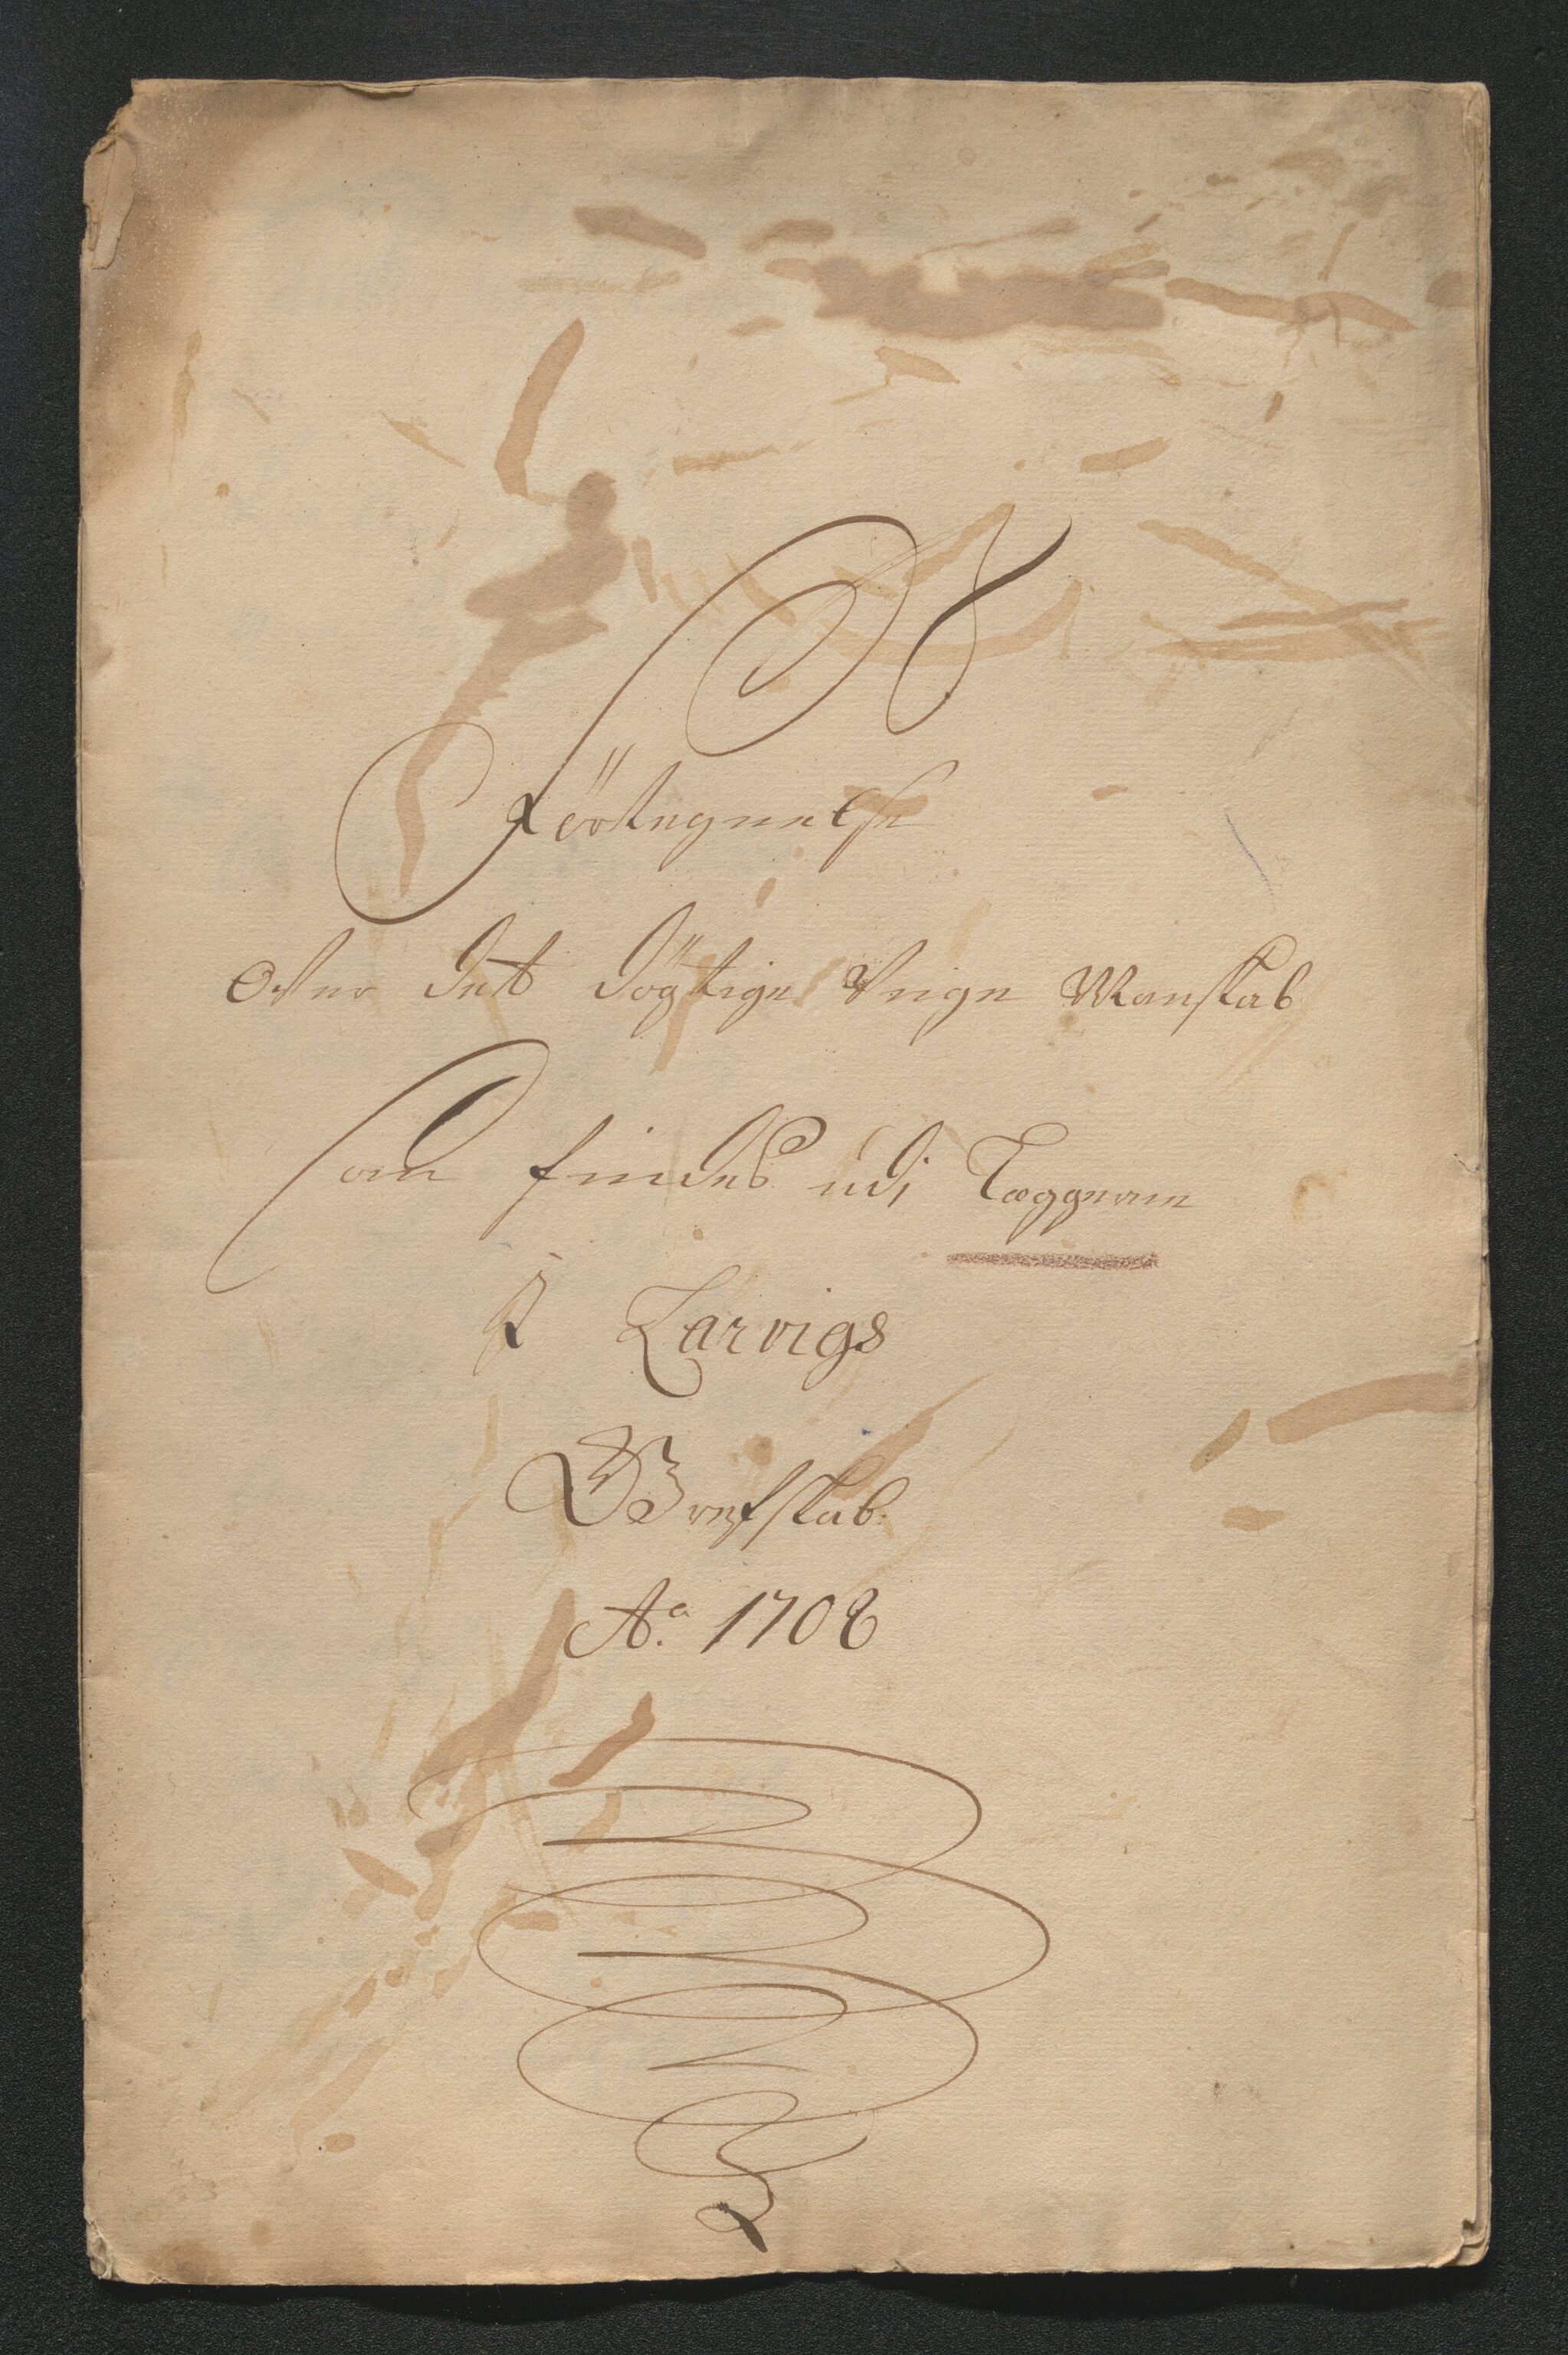 Förtegnelse
Ofver det dögtige Unge Manskab
Som findes udj Læggerne
J Larvigs
Grefskab.
Ao. 1708